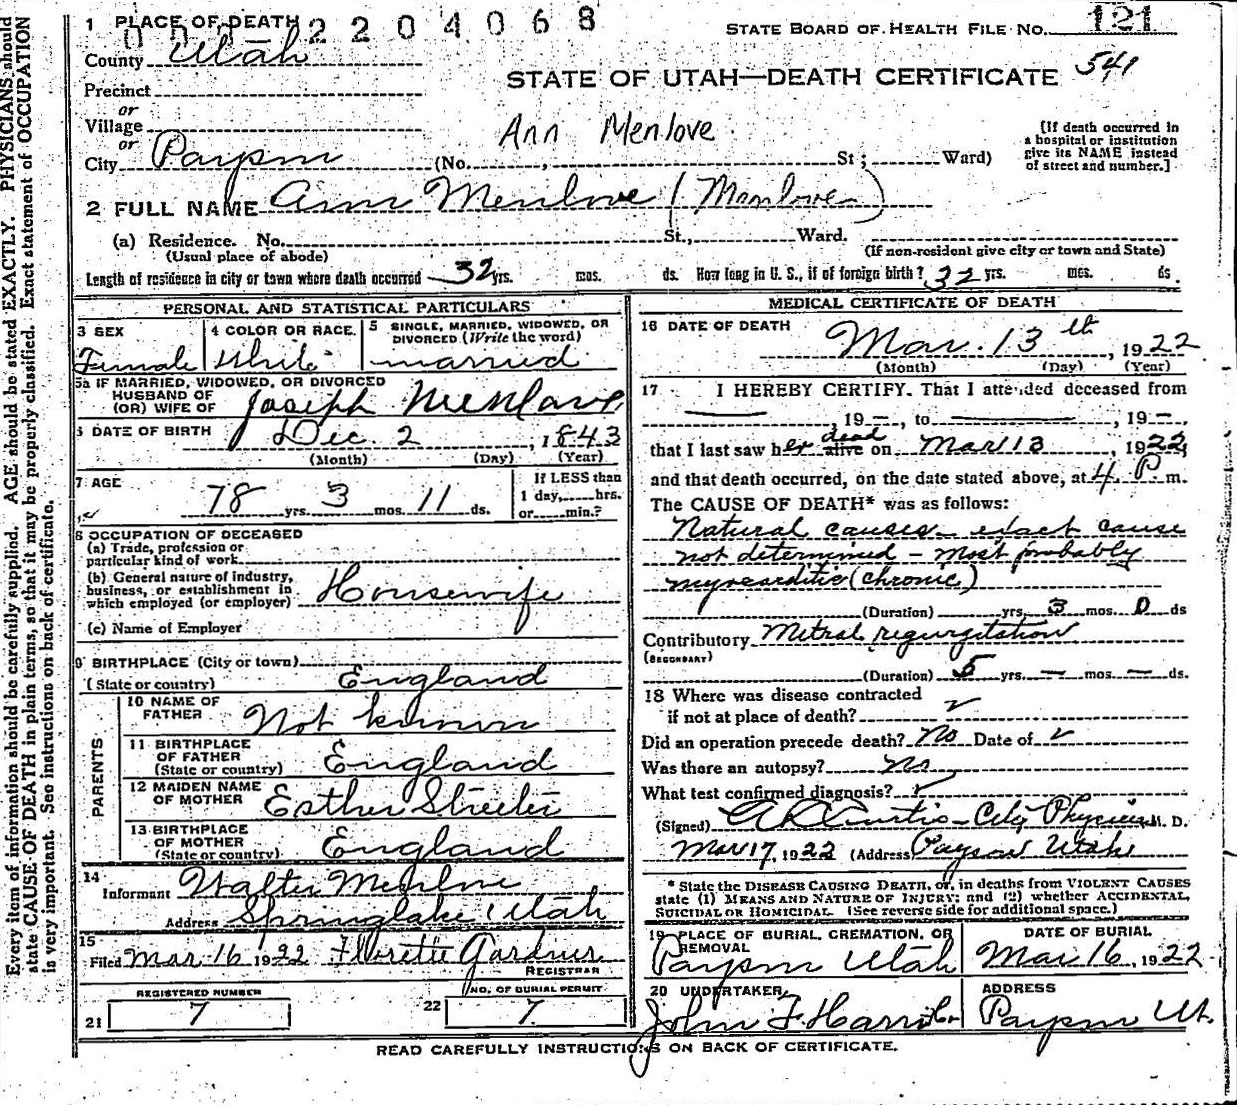 0 0 2 2 0 4 0 6 8
1 PLACE OF DEATH
STATE BOARD OF HEALTH FILE NO. 121
County Utah
541
STATE OF UTAH—DEATH CERTIFICATE
Precinct
or
Village
or
Ann Menlove
[If death occurred in a hospital or institution give its NAME instead of street and number.]
City Payson (No. , St ; Ward)
2 FULL NAME Ann Menlove (Menlove)
(a) Residence. No. St., Ward.
(Usual place of abode) (If non-resident give city or town and State)
Length of residence in city or town where death occurred 32 yrs. mos. ds. How long in U. S., if of foreign birth? 32 yrs. mos. ds
PERSONAL AND STATISTICAL PARTICULARS
3 SEX Female
4 COLOR OR RACE. White
5 SINGLE, MARRIED, WIDOWED, OR DIVORCED (Write the word) married
5a IF MARRIED, WIDOWED, OR DIVORCED
HUSBAND OF
(OR) WIFE OF Joseph Menlove
6 DATE OF BIRTH Dec. 2, 1843
(Month) (Day) (Year)
7 AGE 78 yrs. 3 mos. 11 ds.
If LESS than 1 day, hrs. or min.?
8 OCCUPATION OF DECEASED
(a) Trade, profession or particular kind of work
(b) General nature of industry, business, or establishment in which employed (or employer) Housewife
(c) Name of Employer
9 BIRTHPLACE (City or town)
(State or country) England
PARENTS
10 NAME OF FATHER Not known
11 BIRTHPLACE OF FATHER (State or country) England
12 MAIDEN NAME OF MOTHER Esther Streeter
13 BIRTHPLACE OF MOTHER (State or country) England
14
Informant Walter Menlove
Address Springlake Utah
15
Filed Mar 16 1922 Gardner
REGISTRAR
REGISTERED NUMBER
21 7
NO. OF BURIAL PERMIT
22 7
MEDICAL CERTIFICATE OF DEATH
16 DATE OF DEATH
Mar. 13th, 1922
(Month) (Day) (Year)
17 I HEREBY CERTIFY. That I attended deceased from
— 19 —, to —, 19 —
that I last saw her alive dead on Mar 13, 1922,
and that death occurred, on the date stated above, at 4 P. m.
The CAUSE OF DEATH* was as follows:
Natural causes — exact cause
not determined — most probably
myocarditis (chronic)
(Duration) yrs 3 mos. 0 ds
Contributory Mitral regurgitation
(SECONDARY)
(Duration) 5 yrs — mos — ds.
18 Where was disease contracted
if not at place of death? ✓
Did an operation precede death? No Date of ✓
Was there an autopsy? no
What test confirmed diagnosis? ✓
(Signed) Curtis - City Physician M. D.
Mar 17, 1922 (Address Payson Utah
* State the DISEASE CAUSING DEATH, or, in deaths from VIOLENT CAUSES
state (1) MEANS AND NATURE OF INJURY; and (2) whether ACCIDENTAL,
SUICIDAL OR HOMICIDAL. (See reverse side for additional space.)
19 PLACE OF BURIAL, CREMATION, OR REMOVAL
Payson Utah
DATE OF BURIAL
Mar 16, 1922
20 UNDERTAKER
John F. Harris
ADDRESS
Payson Ut.
READ CAREFULLY INSTRUCTIONS ON BACK OF CERTIFICATE.
Every item of information should be carefully supplied. AGE should be stated EXACTLY. PHYSICIANS should
state CAUSE OF DEATH in plain terms, so that it may be properly classified. Exact statement of OCCUPATION
is very important. See instructions on back of certificate.